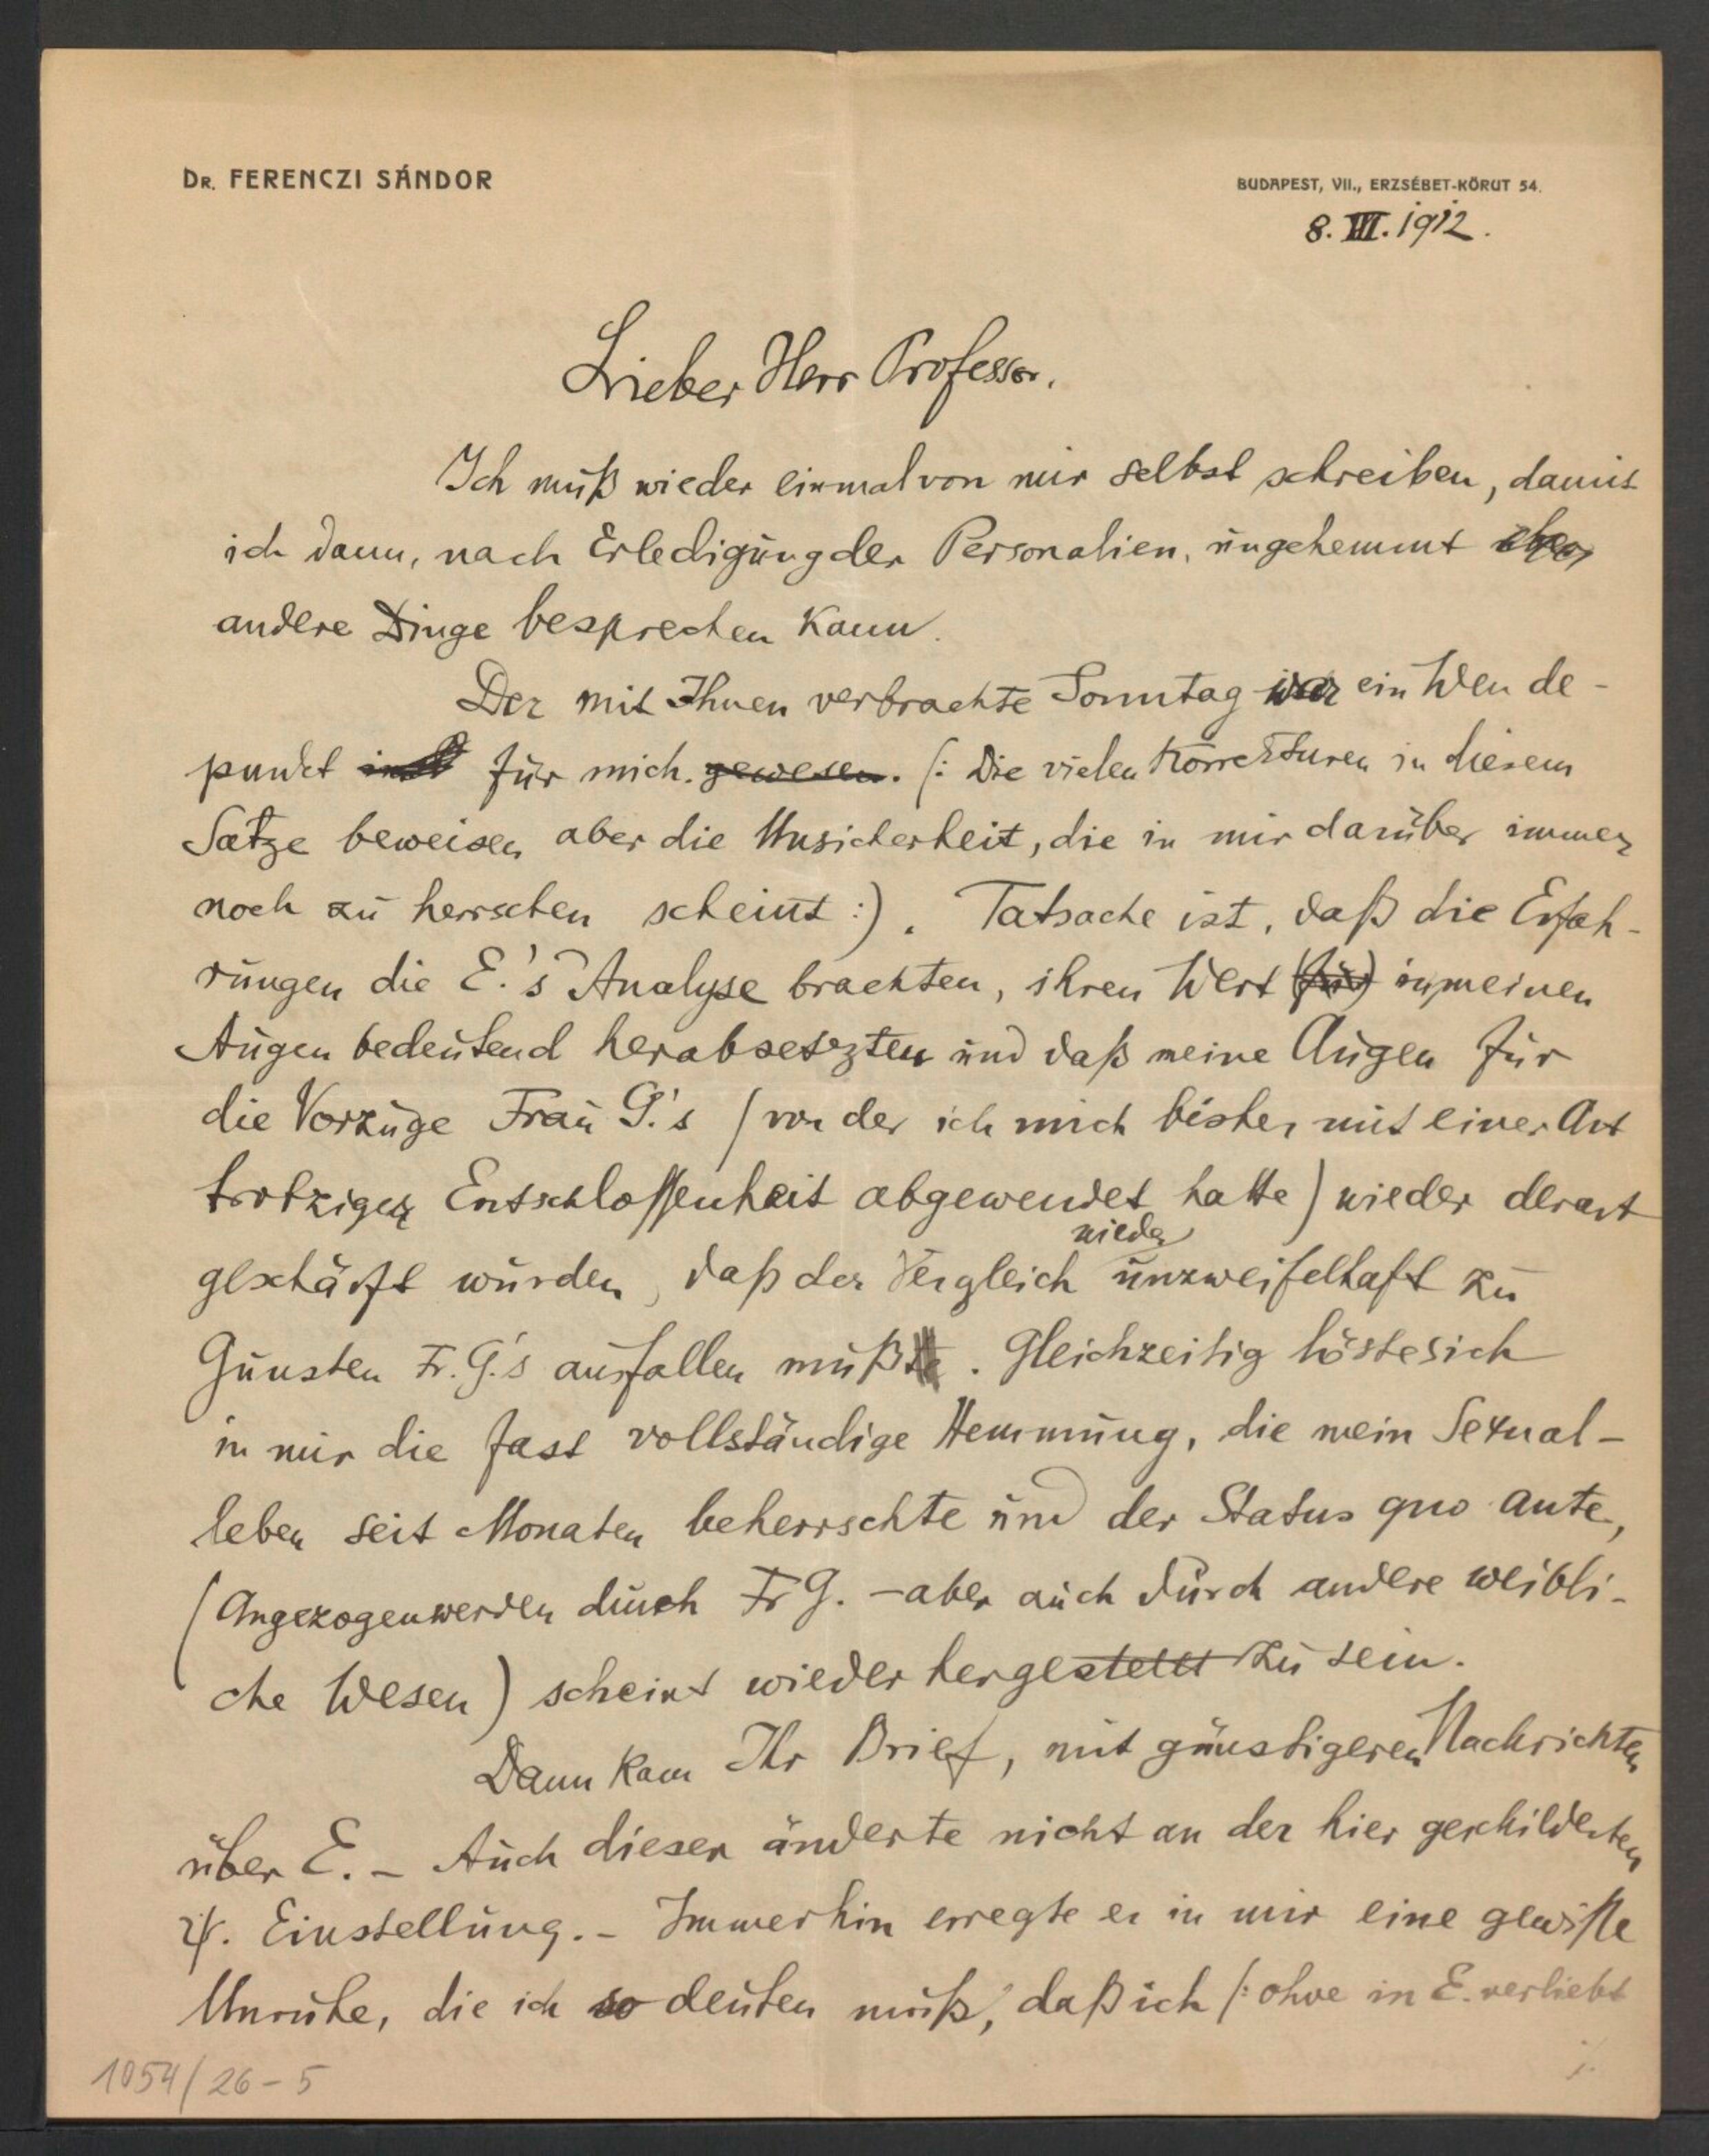 DR. FERENCZI SÁNDOR
BUDAPEST, VII., ERZSÉBET-KÖRUT 54.
8. III. 1912.
Lieber Herr Professor.
Ich muß wieder einmal von mir selbst schreiben, damit
ich dann, nach Erledigung der Personalien, ungehemmt
andere Dinge besprechen kann.
Der mit Ihnen verbrachte Sonntag war ein Wende-
punkt für mich. gewesen. (: Die vielen Korrekturen in diesem
Satze beweisen aber die Unsicherheit, die in mir darüber immer
noch zu herrschen scheint :). Tatsache ist, daß die Erfah-
rungen die E.'s Analyse brachten, ihren Wert (für) in meinen
Augen bedeutend herabsetzten und daß meine Augen für
die Vorzüge Frau G.'s (von der ich mich bisher mit einer Art
trotziger Entschlossenheit abgewendet hatte) wieder derart
geschärft wurden, daß der Vergleich wieder unzweifelhaft zu
Gunsten Fr. G.'s ausfallen mußte. Gleichzeitig löste sich
in mir die fast vollständige Hemmung, die mein Sexual-
leben seit Monaten beherrschte und der Status quo ante,
(Angezogenwerden durch Fr G. - aber auch durch andere weibli-
che Wesen) scheint wieder hergestellt zu sein.
Dann kam Ihr Brief, mit günstigeren Nachrichten
über E. - Auch dieser änderte nicht an der hier geschilderten
ψ. Einstellung. - Immerhin erregte er in mir eine gewisse
Unruhe, die ich so deuten muß, daß ich (: ohne in E. verliebt
1054/26-5
./.